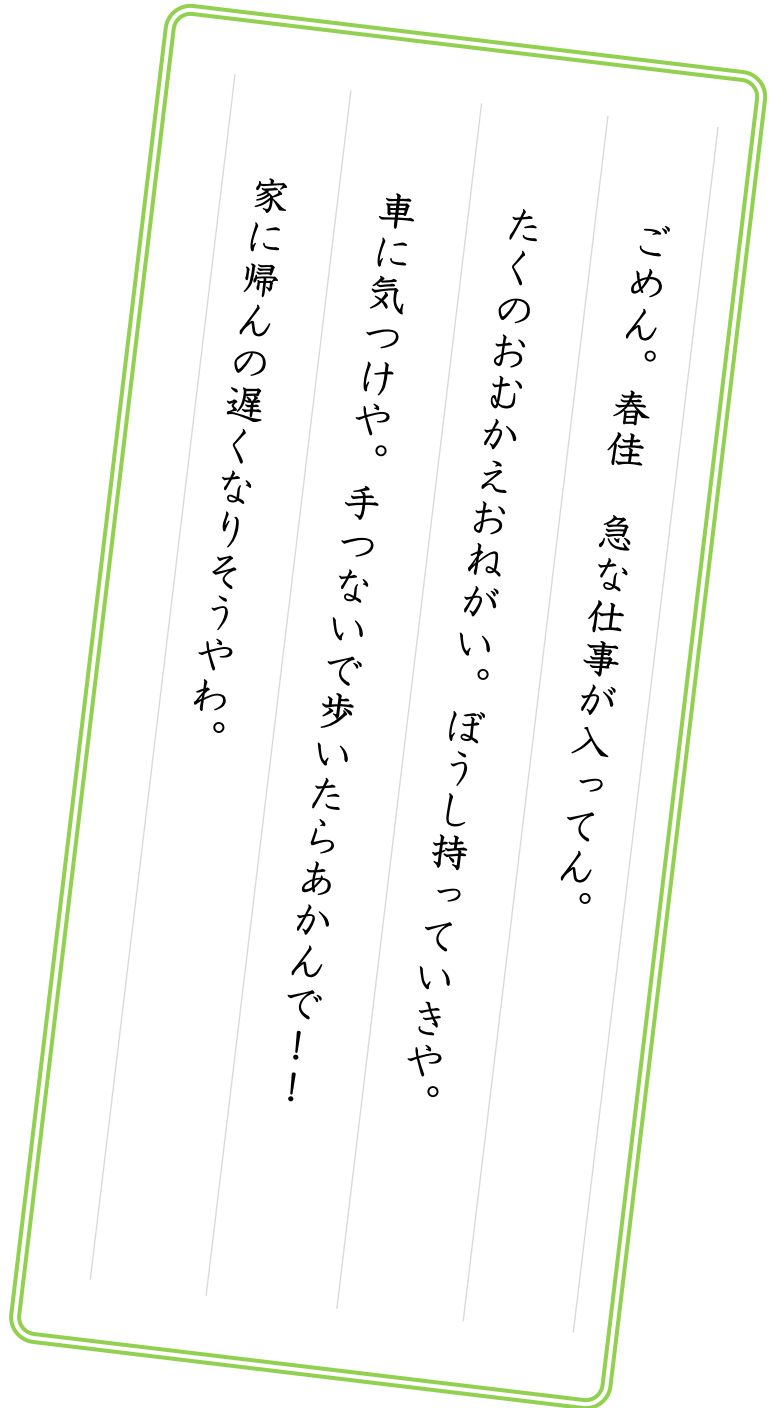 ごめん。春佳　急な仕事が入ってん。
たくのおむかえおねがい。ぼうし持っていきや。
車に気つけや。手つないで歩いたらあかんで！！
家に帰んの遅くなりそうやわ。